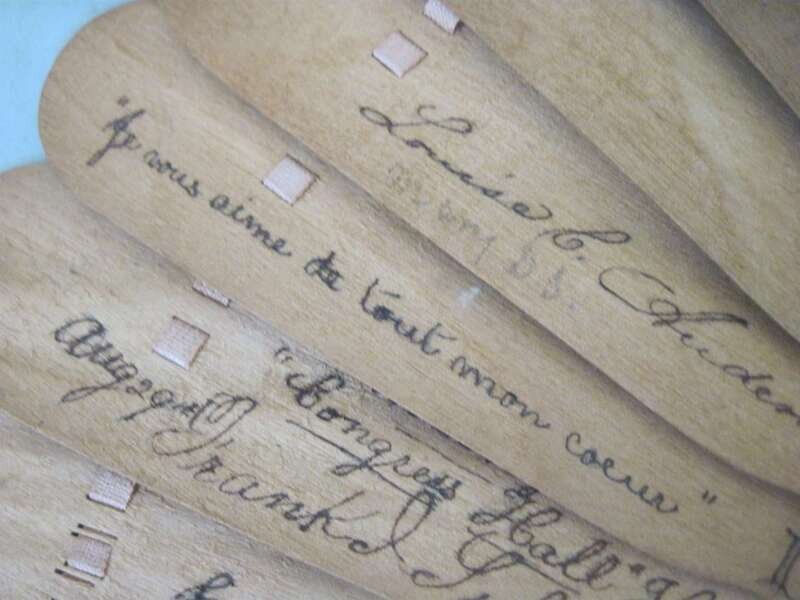 Louise C.
"Je vous aime de tout mon coeur"
"Congress Hall"
Aug 29th
Frank